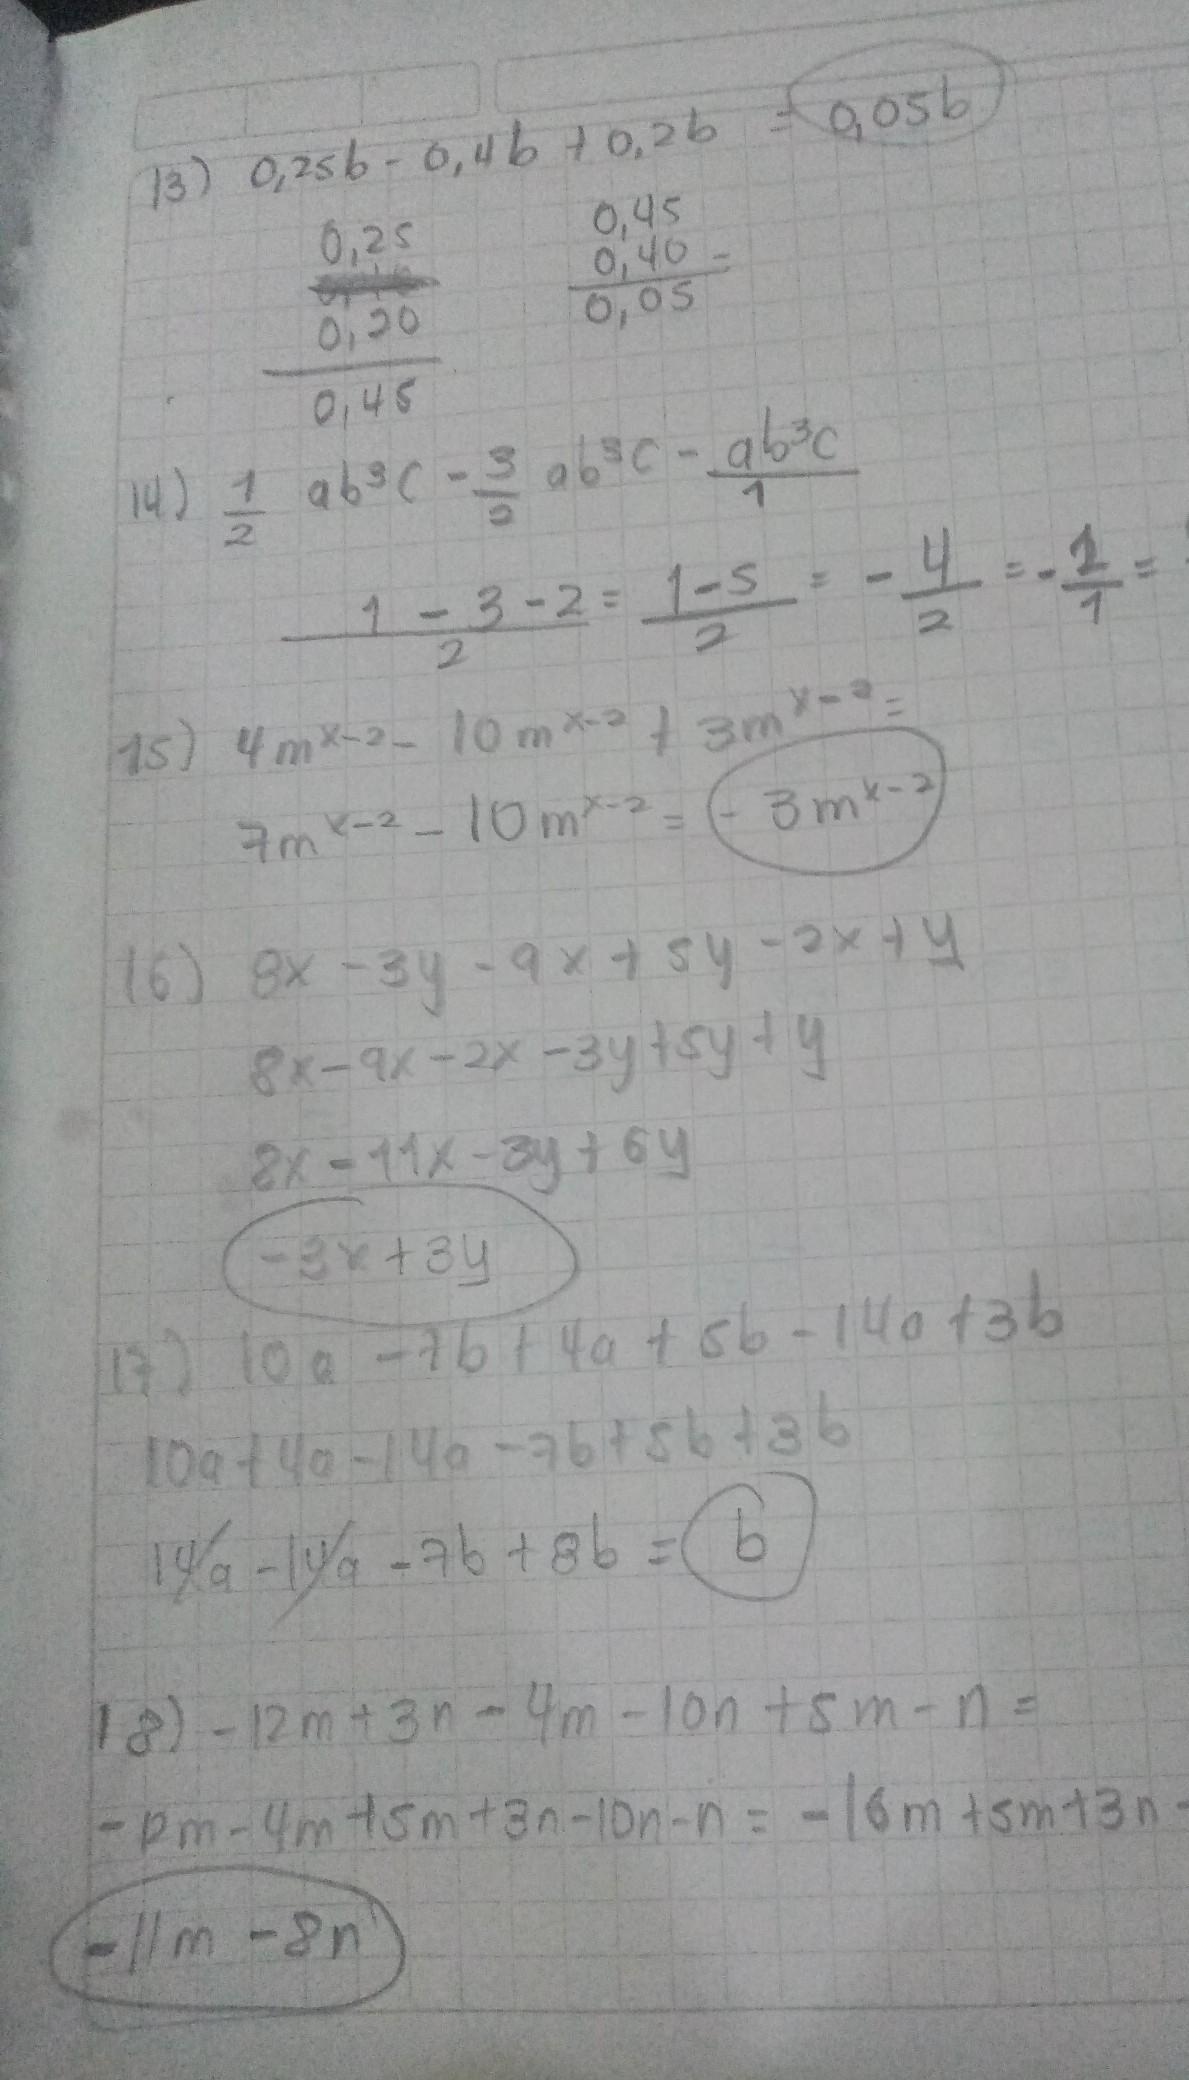 13) 0,25b - 0,4b + 0,2b = 0,05b
0,25 0,45
0,20 0,40 -
0,45 0,05
14) 1/2 ab³c - 3/2 ab³c - ab³c/1
(1 - 3 - 2)/2 = (1 - 5)/2 = - 4/2 = - 2/1 =
15) 4m^(x-2) - 10m^(x-2) + 3m^(x-2) =
7m^(x-2) - 10m^(x-2) = - 3m^(x-2)
16) 8x - 3y - 9x + 5y - 2x + y
8x - 9x - 2x - 3y + 5y + y
8x - 11x - 3y + 6y
- 3x + 3y
17) 10a - 7b + 4a + 5b - 14a + 3b
10a + 4a - 14a - 7b + 5b + 3b
14a - 14a - 7b + 8b = b
18) - 12m + 3n - 4m - 10n + 5m - n =
- 12m - 4m + 5m + 3n - 10n - n = - 16m + 5m + 3n -
- 11m - 8n